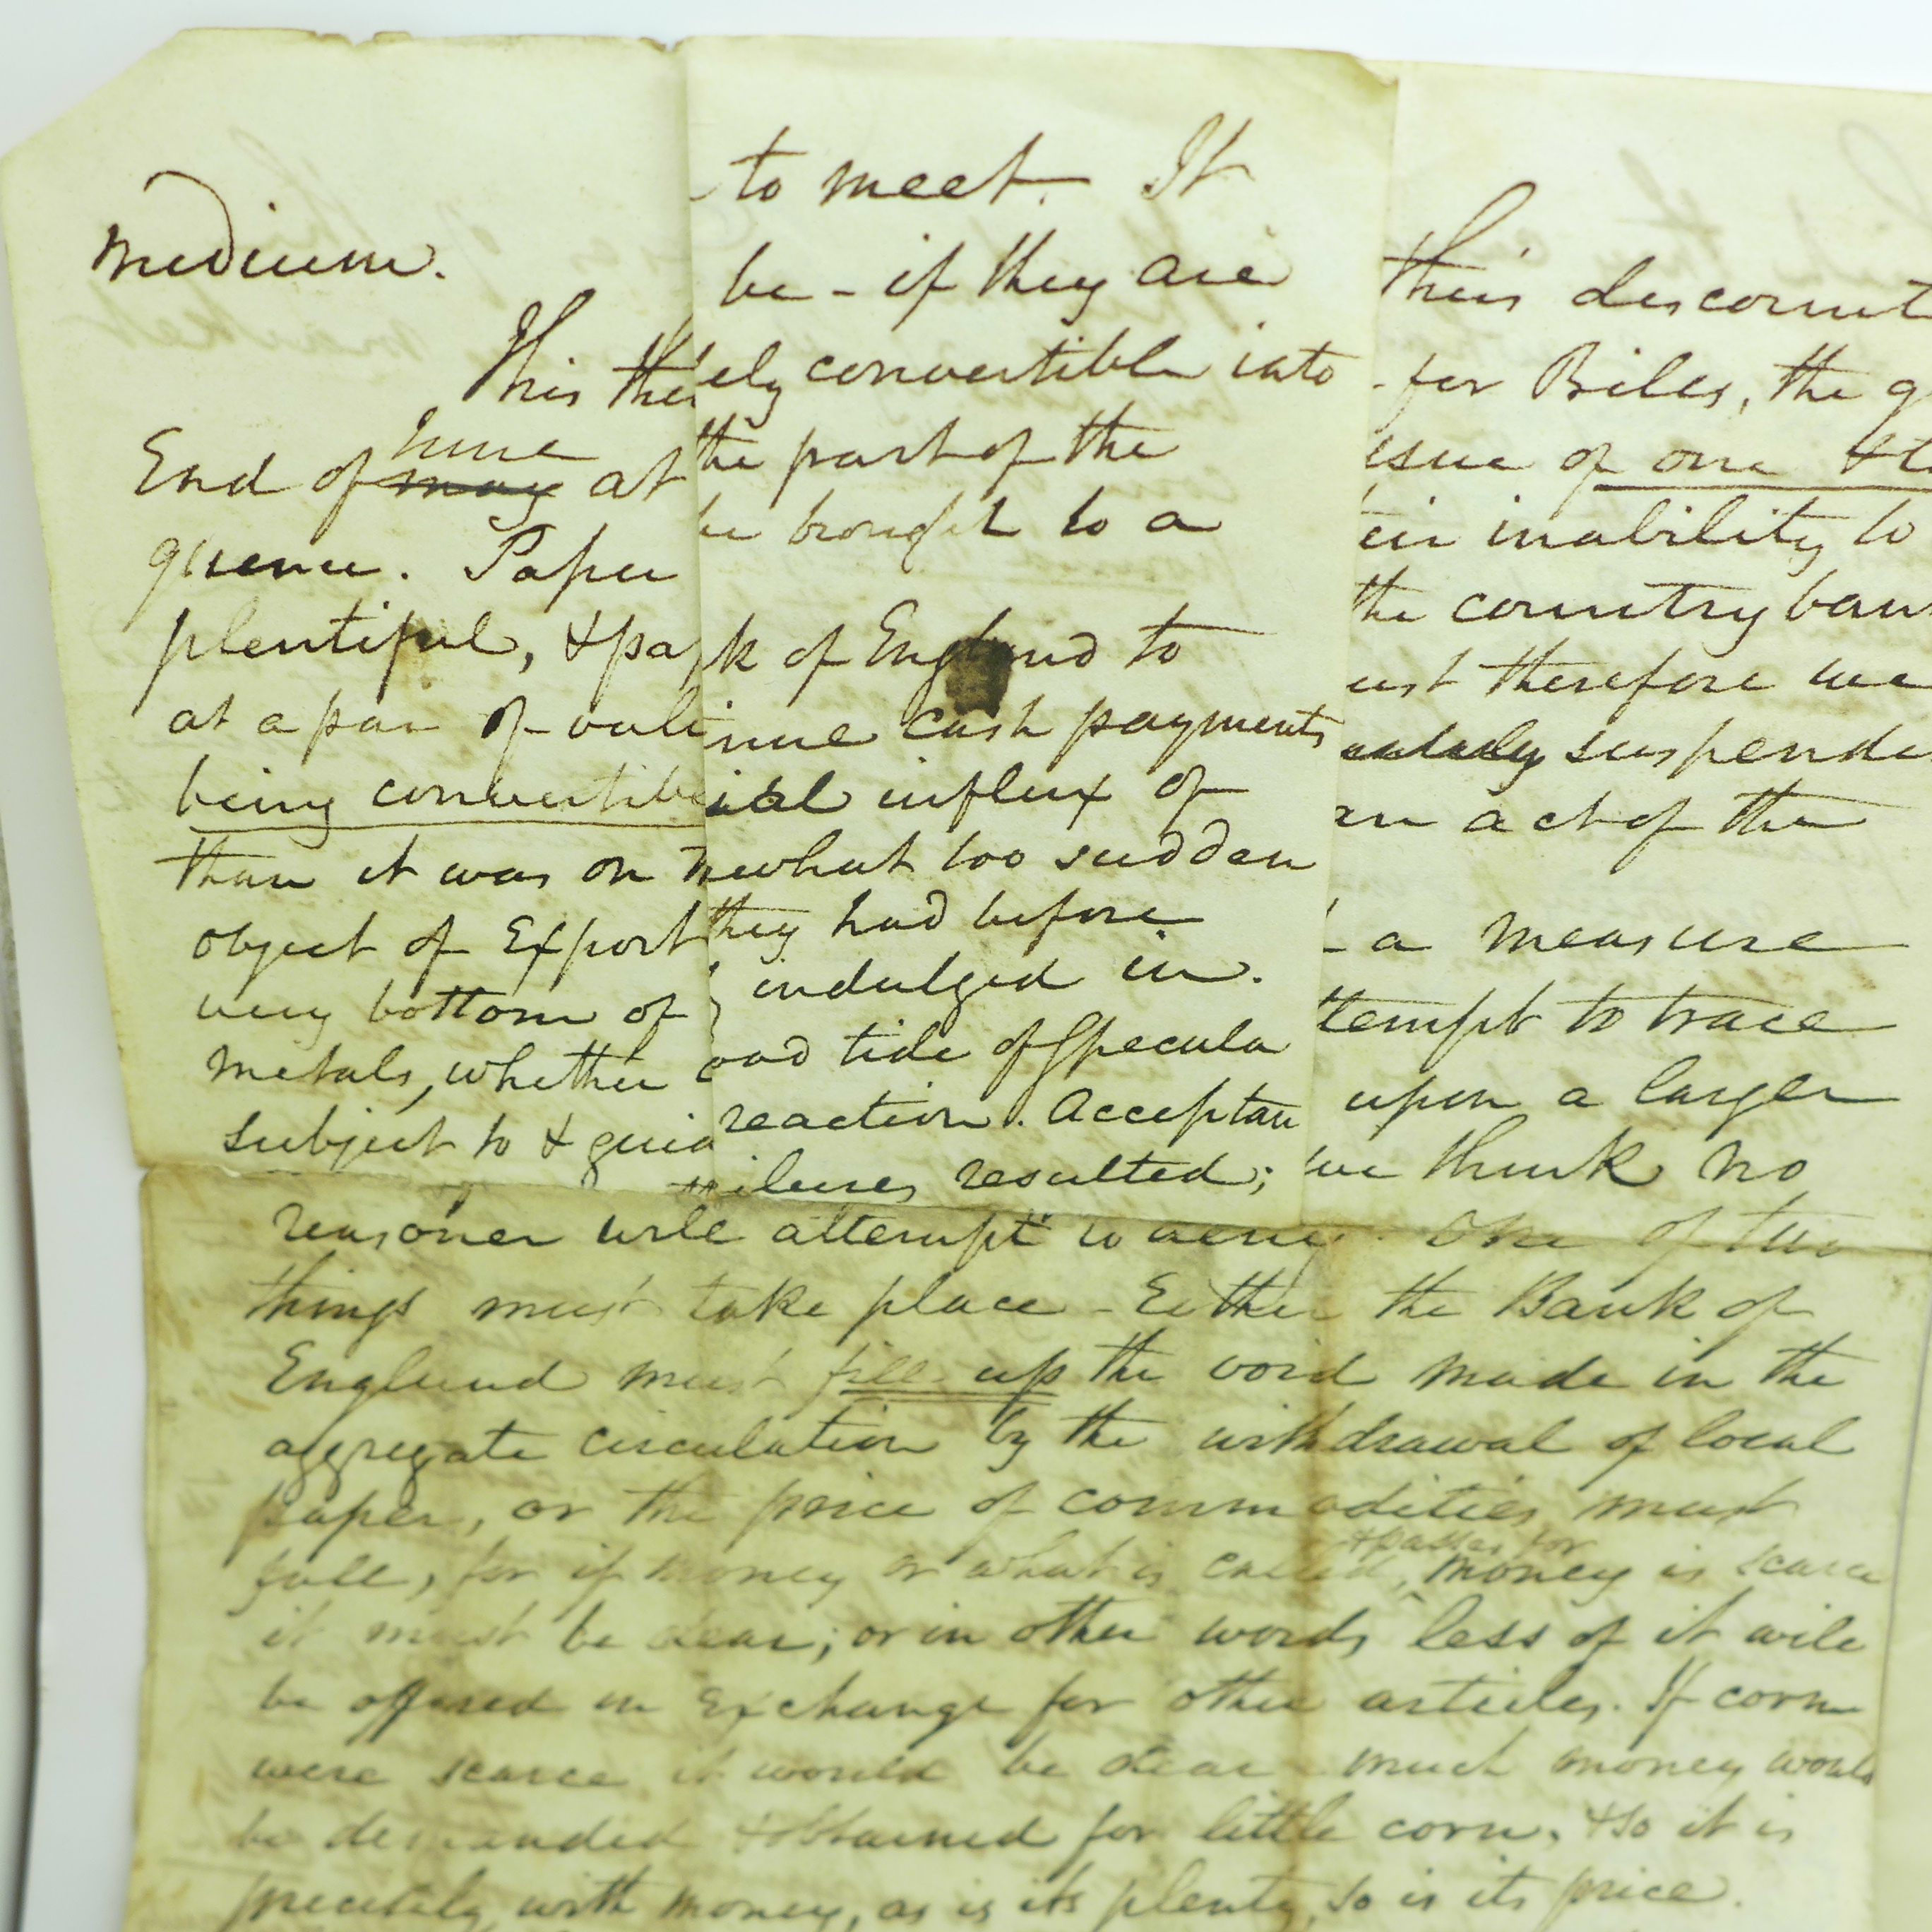 medium.
This the
End of June may at
quence. Paper
plentiful, & pa
at a par of valu
being convertib
than it was on
object of Export
very bottom of
metals, whether
subject to & guid
to meet. It
be - if they are
ely convertible into
the part of the
be brought to a
k of England to
nue cash payments
ial influx of
ewhat too sudden
they had before
indulged in.
oad tide of Specula
reaction. Acceptan
ilures resulted;
their discount
for Bills, the g
issue of one &
eir inability to
the country ban
ust therefore we
suspende
an act of the
a measure
ttempt to trace
upon a larger
we think no
reasoner will attempt to deny. One of two
things must take place - Either the Bank of
England must fill up the void made in the
aggregate circulation by the withdrawal of local
paper, or the price of commodities must
fall, for if money or what is called, & passes for money is scarce
it must be dear; or in other words less of it will
be offered in Exchange for other articles. If corn
were scarce it would be dear - much money would
be demanded & obtained for little corn, & so it is
precisely with money, as is its plenty, so is its price.